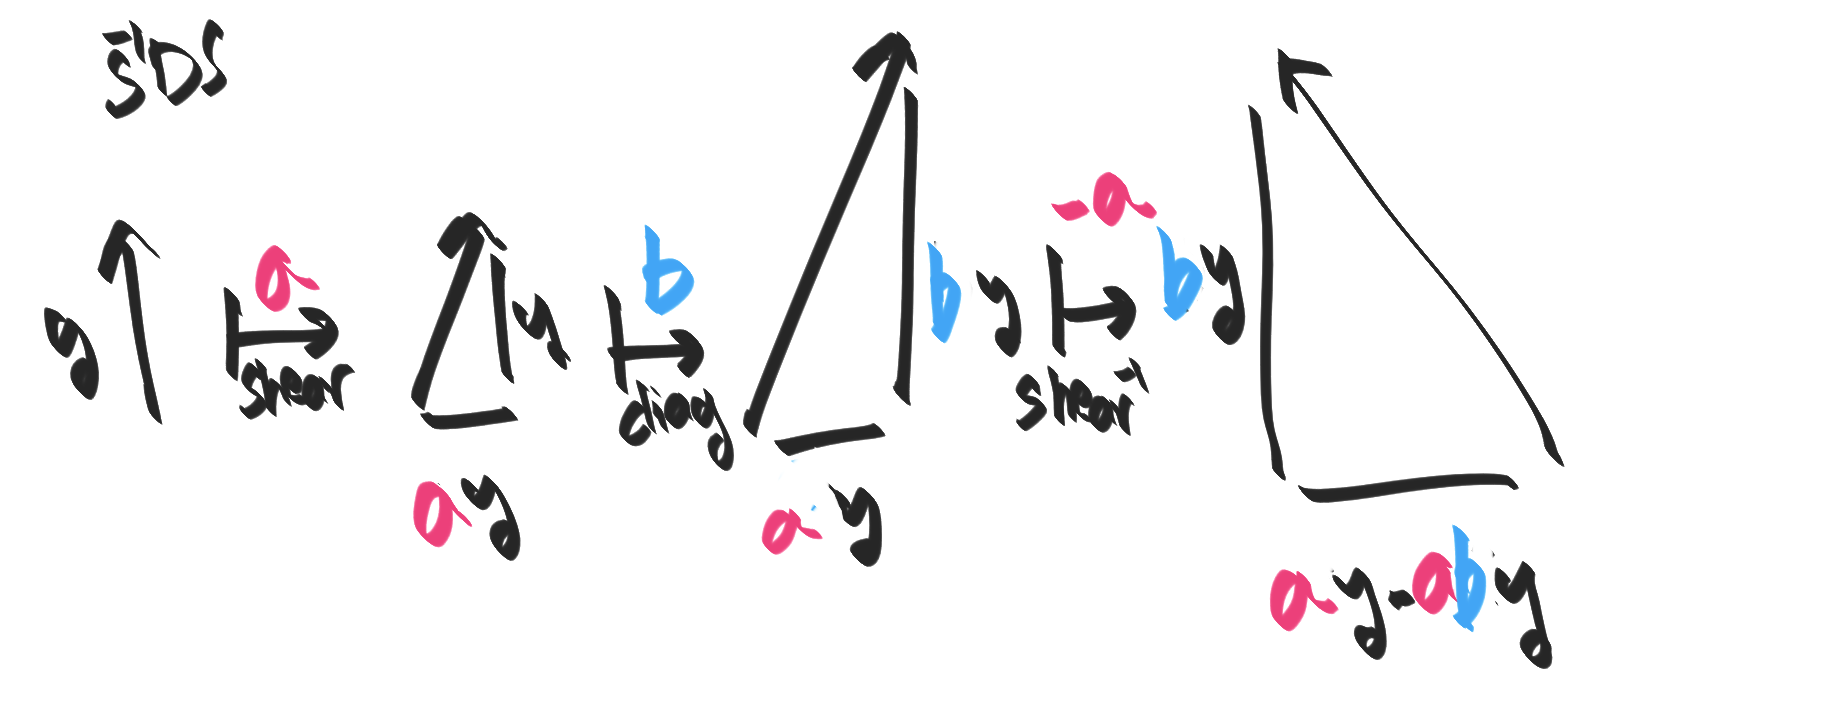 S⁻¹DS
y
a
shear
y
ay
b
diag
by
ay
-a
shear⁻¹
by
ay-aby